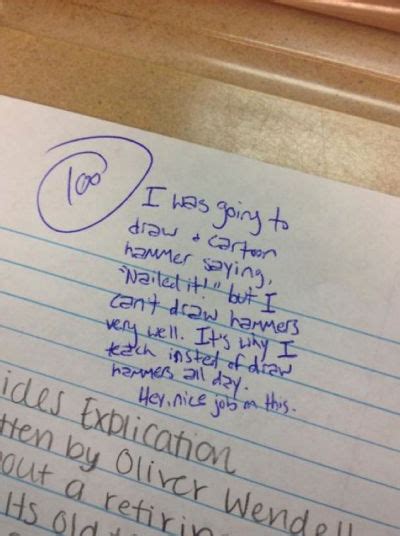 100
I was going to
draw a cartoon
hammer saying,
"Nailed it!" but I
can't draw hammers
very well. It's why I
teach insted of draw
hammers all day.
Hey, nice job on this.
ides Explication
tten by Oliver Wendell
out a retirin
Its old